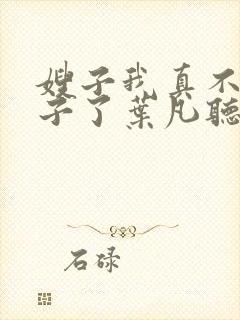 嫂子我真不
子了葉凡聽
石碌